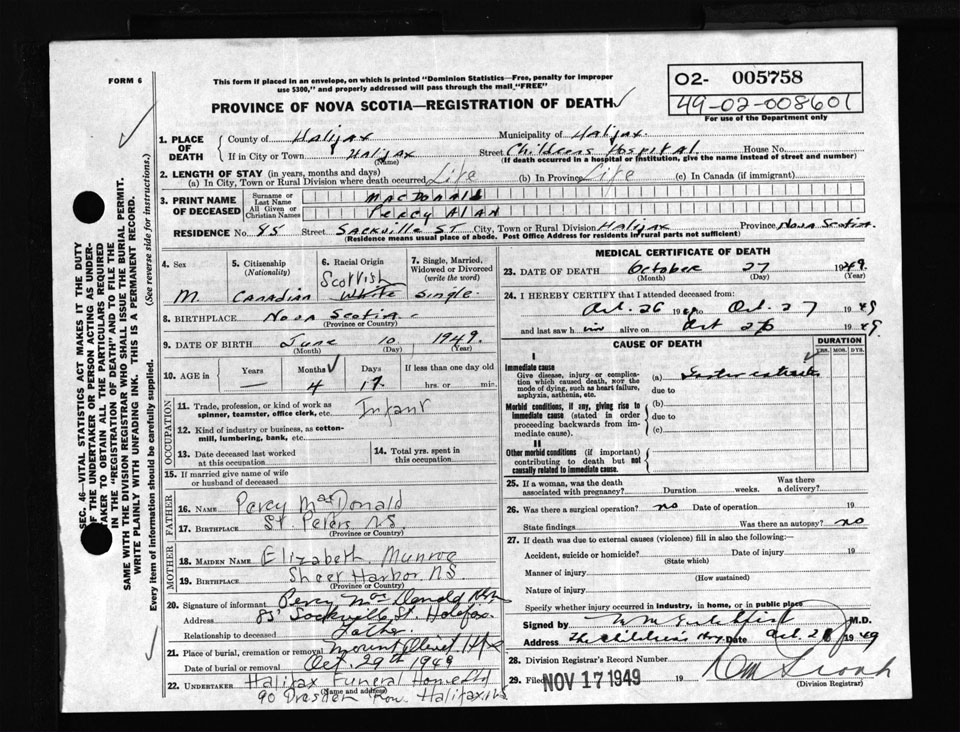 FORM 6
This form if placed in an envelope, on which is printed "Dominion Statistics—Free, penalty for improper
use $300," and properly addressed will pass through the mail "FREE"
O2- 005758
49-02-008601
For use of the Department only
PROVINCE OF NOVA SCOTIA—REGISTRATION OF DEATH
SEC. 46—VITAL STATISTICS ACT MAKES IT THE DUTY
OF THE UNDERTAKER OR PERSON ACTING AS UNDER-
TAKER TO OBTAIN ALL THE PARTICULARS REQUIRED
IN THE "REGISTRATION OF DEATH" AND TO FILE THE
SAME WITH THE DIVISION REGISTRAR WHO SHALL ISSUE THE BURIAL PERMIT.
WRITE PLAINLY WITH UNFADING INK. THIS IS A PERMANENT RECORD.
Every item of information should be carefully supplied. (See reverse side for instructions.)
1. PLACE OF DEATH
County of Halifax Municipality of Halifax.
If in City or Town Halifax Street Childrens Hospital. House No.
(Name) (If death occurred in a hospital or institution, give the name instead of street and number)
2. LENGTH OF STAY (in years, months and days)
(a) In City, Town or Rural Division where death occurred Life (b) In Province Life (c) In Canada (if immigrant)
3. PRINT NAME OF DECEASED
Surname or Last Name MacDonald
All Given or Christian Names Percy Alan
RESIDENCE No. 85 Street Sackville St City, Town or Rural Division Halifax Province Nova Scotia.
(Residence means usual place of abode. Post Office Address for residents in rural parts not sufficient)
4. Sex
M.
5. Citizenship
(Nationality)
Canadian
6. Racial Origin
Scottish
White
7. Single, Married,
Widowed or Divorced
(write the word)
Single.
8. BIRTHPLACE Nova Scotia.
(Province or Country)
9. DATE OF BIRTH June 10 1949.
(Month) (Day) (Year)
10. AGE in
Years Months Days If less than one day old
— 4 17 hrs. or min.
OCCUPATION
11. Trade, profession, or kind of work as
spinner, teamster, office clerk, etc. Infant
12. Kind of industry or business, as cotton-
mill, lumbering, bank, etc.
13. Date deceased last worked
at this occupation
14. Total yrs. spent in
this occupation
15. If married give name of wife
or husband of deceased
FATHER
16. NAME Percy MacDonald
17. BIRTHPLACE St. Peters N.S.
(Province or Country)
MOTHER
18. MAIDEN NAME Elizabeth Munroe
19. BIRTHPLACE Sheet Harbor N.S.
(Province or Country)
20. Signature of informant Percy MacDonald
Address 85 Sackville St. Halifax.
Relationship to deceased Father
21. Place of burial, cremation or removal Mount Olivet Hfx
Date of burial or removal Oct. 29th 1949
22. UNDERTAKER Halifax Funeral Home Ltd
(Name and address)
90 Dresden Row Halifax N.S
MEDICAL CERTIFICATE OF DEATH
23. DATE OF DEATH October 27 1949.
(Month) (Day) (Year)
24. I HEREBY CERTIFY that I attended deceased from:
Oct. 26 1949 to Oct. 27 1949
and last saw him alive on Oct 26 1949.
CAUSE OF DEATH
DURATION
YRS. MOS. DYS.
I
Immediate cause
Give disease, injury or complica-
tion which caused death, NOT the
mode of dying, such as heart failure,
asphyxia, asthenia, etc.
(a)
due to
Morbid conditions, if any, giving rise to
immediate cause (stated in order
proceeding backwards from im-
mediate cause).
(b)
due to
(c)
II
Other morbid conditions (if important)
contributing to death but not
causally related to immediate cause.
25. If a woman, was the death
associated with pregnancy? Duration weeks. Was there
a delivery?
26. Was there a surgical operation? no Date of operation 19
State findings Was there an autopsy? no
27. If death was due to external causes (violence) fill in also the following:—
Accident, suicide or homicide? Date of injury 19
(State which)
Manner of injury
(How sustained)
Nature of injury
Specify whether injury occurred in industry, in home, or in public place
Signed by M.D.
Address The Children's Hosp. Date Oct. 28 1949
28. Division Registrar's Record Number
29. Filed NOV 17 1949 19
(Division Registrar)